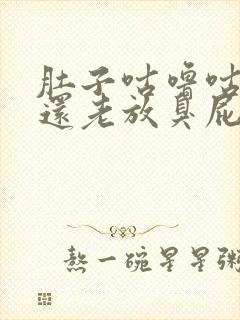 肚子咕嚕咕
還老放臭屁
熬一碗星星粥